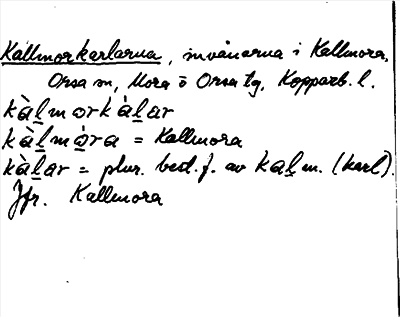 Kallmorkarlarna, invånarna i Kallmora,
Orsa sn, Mora o Orsa tg, Kopparb. l.
kàlmorkàlar
kàlmòra = Kallmora
kàlar = plur. best. f. av kal m. (karl).
Jfr. Kallmora